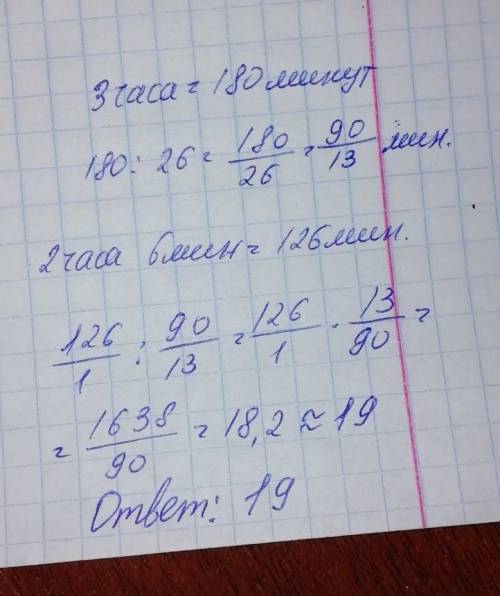 3 часа = 180 минут
180 : 26 = 180/26 = 90/13 мин.
2 часа 6 мин = 126 мин.
126/1 : 90/13 = 126/1 · 13/90 =
= 1638/90 = 18,2 ≈ 19
Ответ: 19